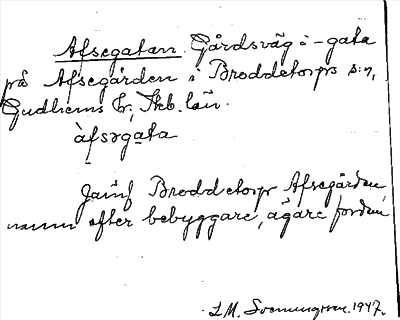 Afsegatan. Gårdsväg o -gata
på Afsegården i Broddetorps s:n,
Gudhems hr., Skb. län.
àfsəgata
Jämf Broddetorps Afsegården,
namn efter bebyggare, ägare fordom
L M. Svenungsson. 1947.